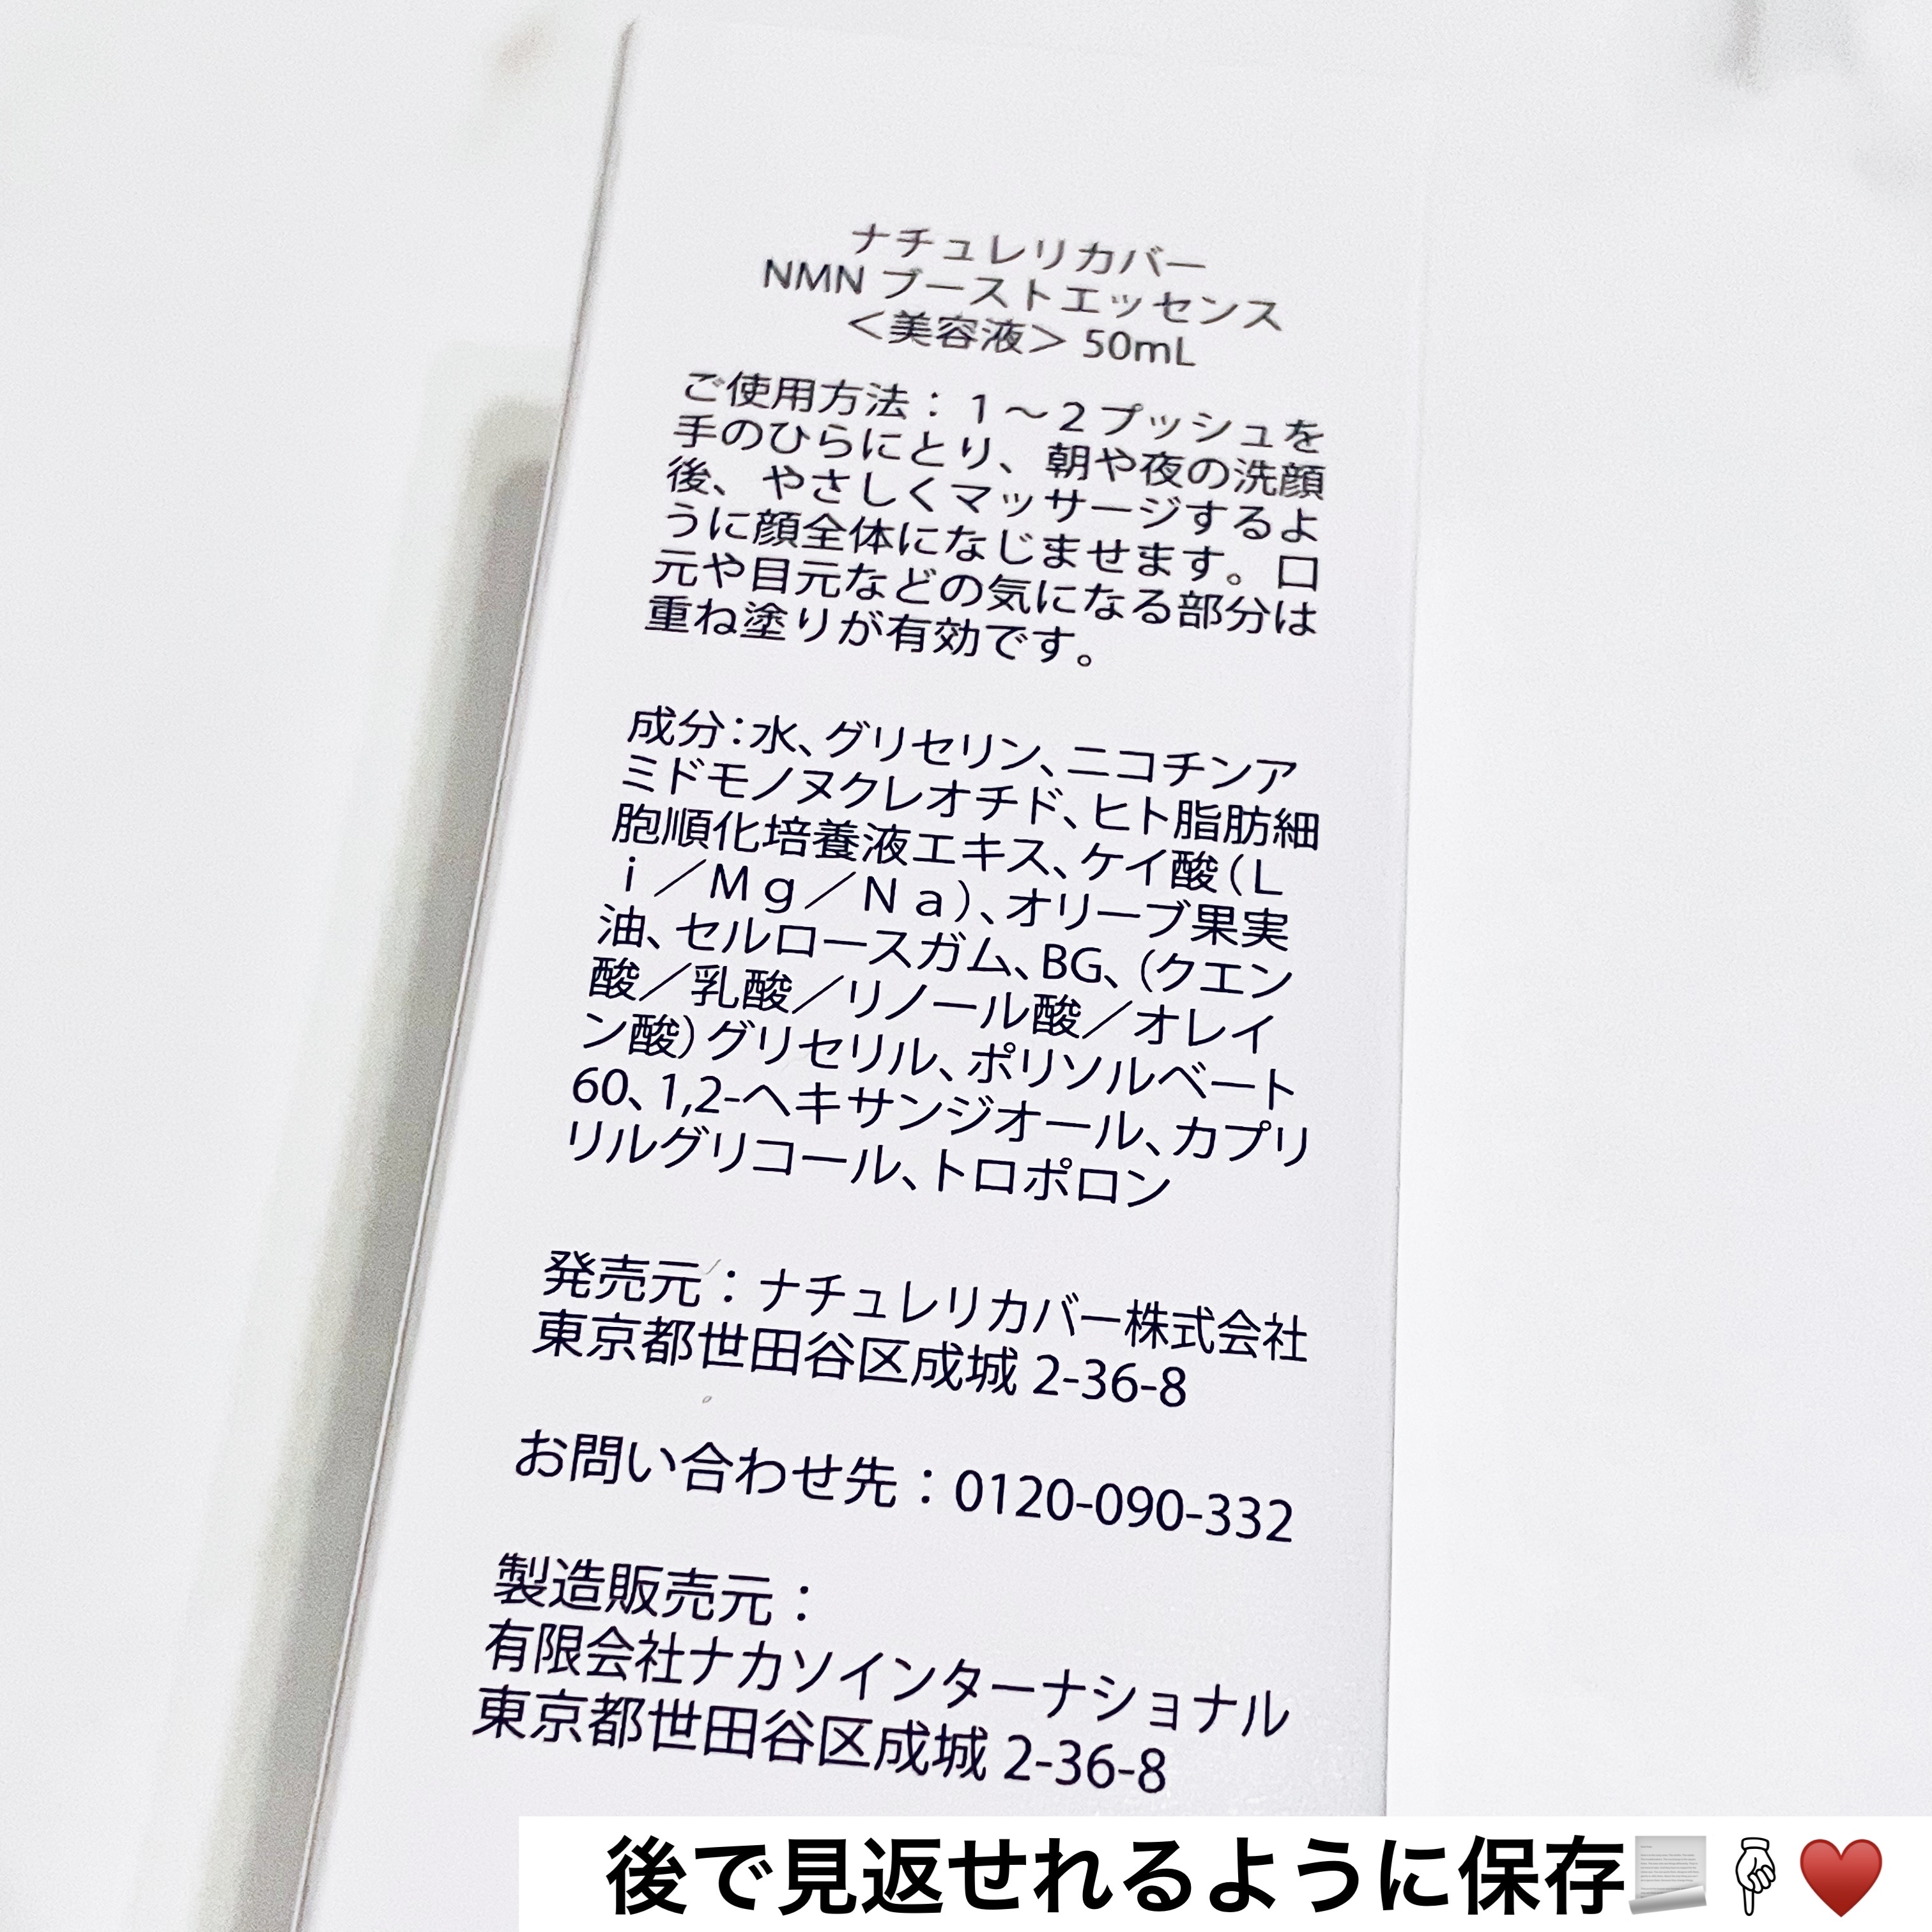 ナチュレリカバー
NMN ブーストエッセンス
＜美容液＞ 50mL
ご使用方法：１～２プッシュを
手のひらにとり、朝や夜の洗顔
後、やさしくマッサージするよ
うに顔全体になじませます。口
元や目元などの気になる部分は
重ね塗りが有効です。
成分：水、グリセリン、ニコチンア
ミドモノヌクレオチド、ヒト脂肪細
胞順化培養液エキス、ケイ酸（Ｌ
ｉ／Ｍｇ／Ｎａ）、オリーブ果実
油、セルロースガム、BG、（クエン
酸／乳酸／リノール酸／オレイ
ン酸）グリセリル、ポリソルベート
60、1,2-ヘキサンジオール、カプリ
リルグリコール、トロポロン
発売元：ナチュレリカバー株式会社
東京都世田谷区成城 2-36-8
お問い合わせ先：0120-090-332
製造販売元：
有限会社ナカソインターナショナル
東京都世田谷区成城 2-36-8
後で見返せれるように保存📃👇♥